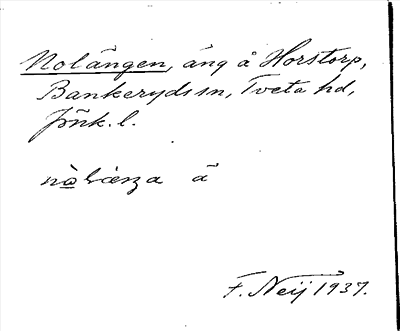 Nolängen, äng å Horstorp,
Bankeryds sn, Tveta hd,
Jönk. l.
F. Neij 1937.